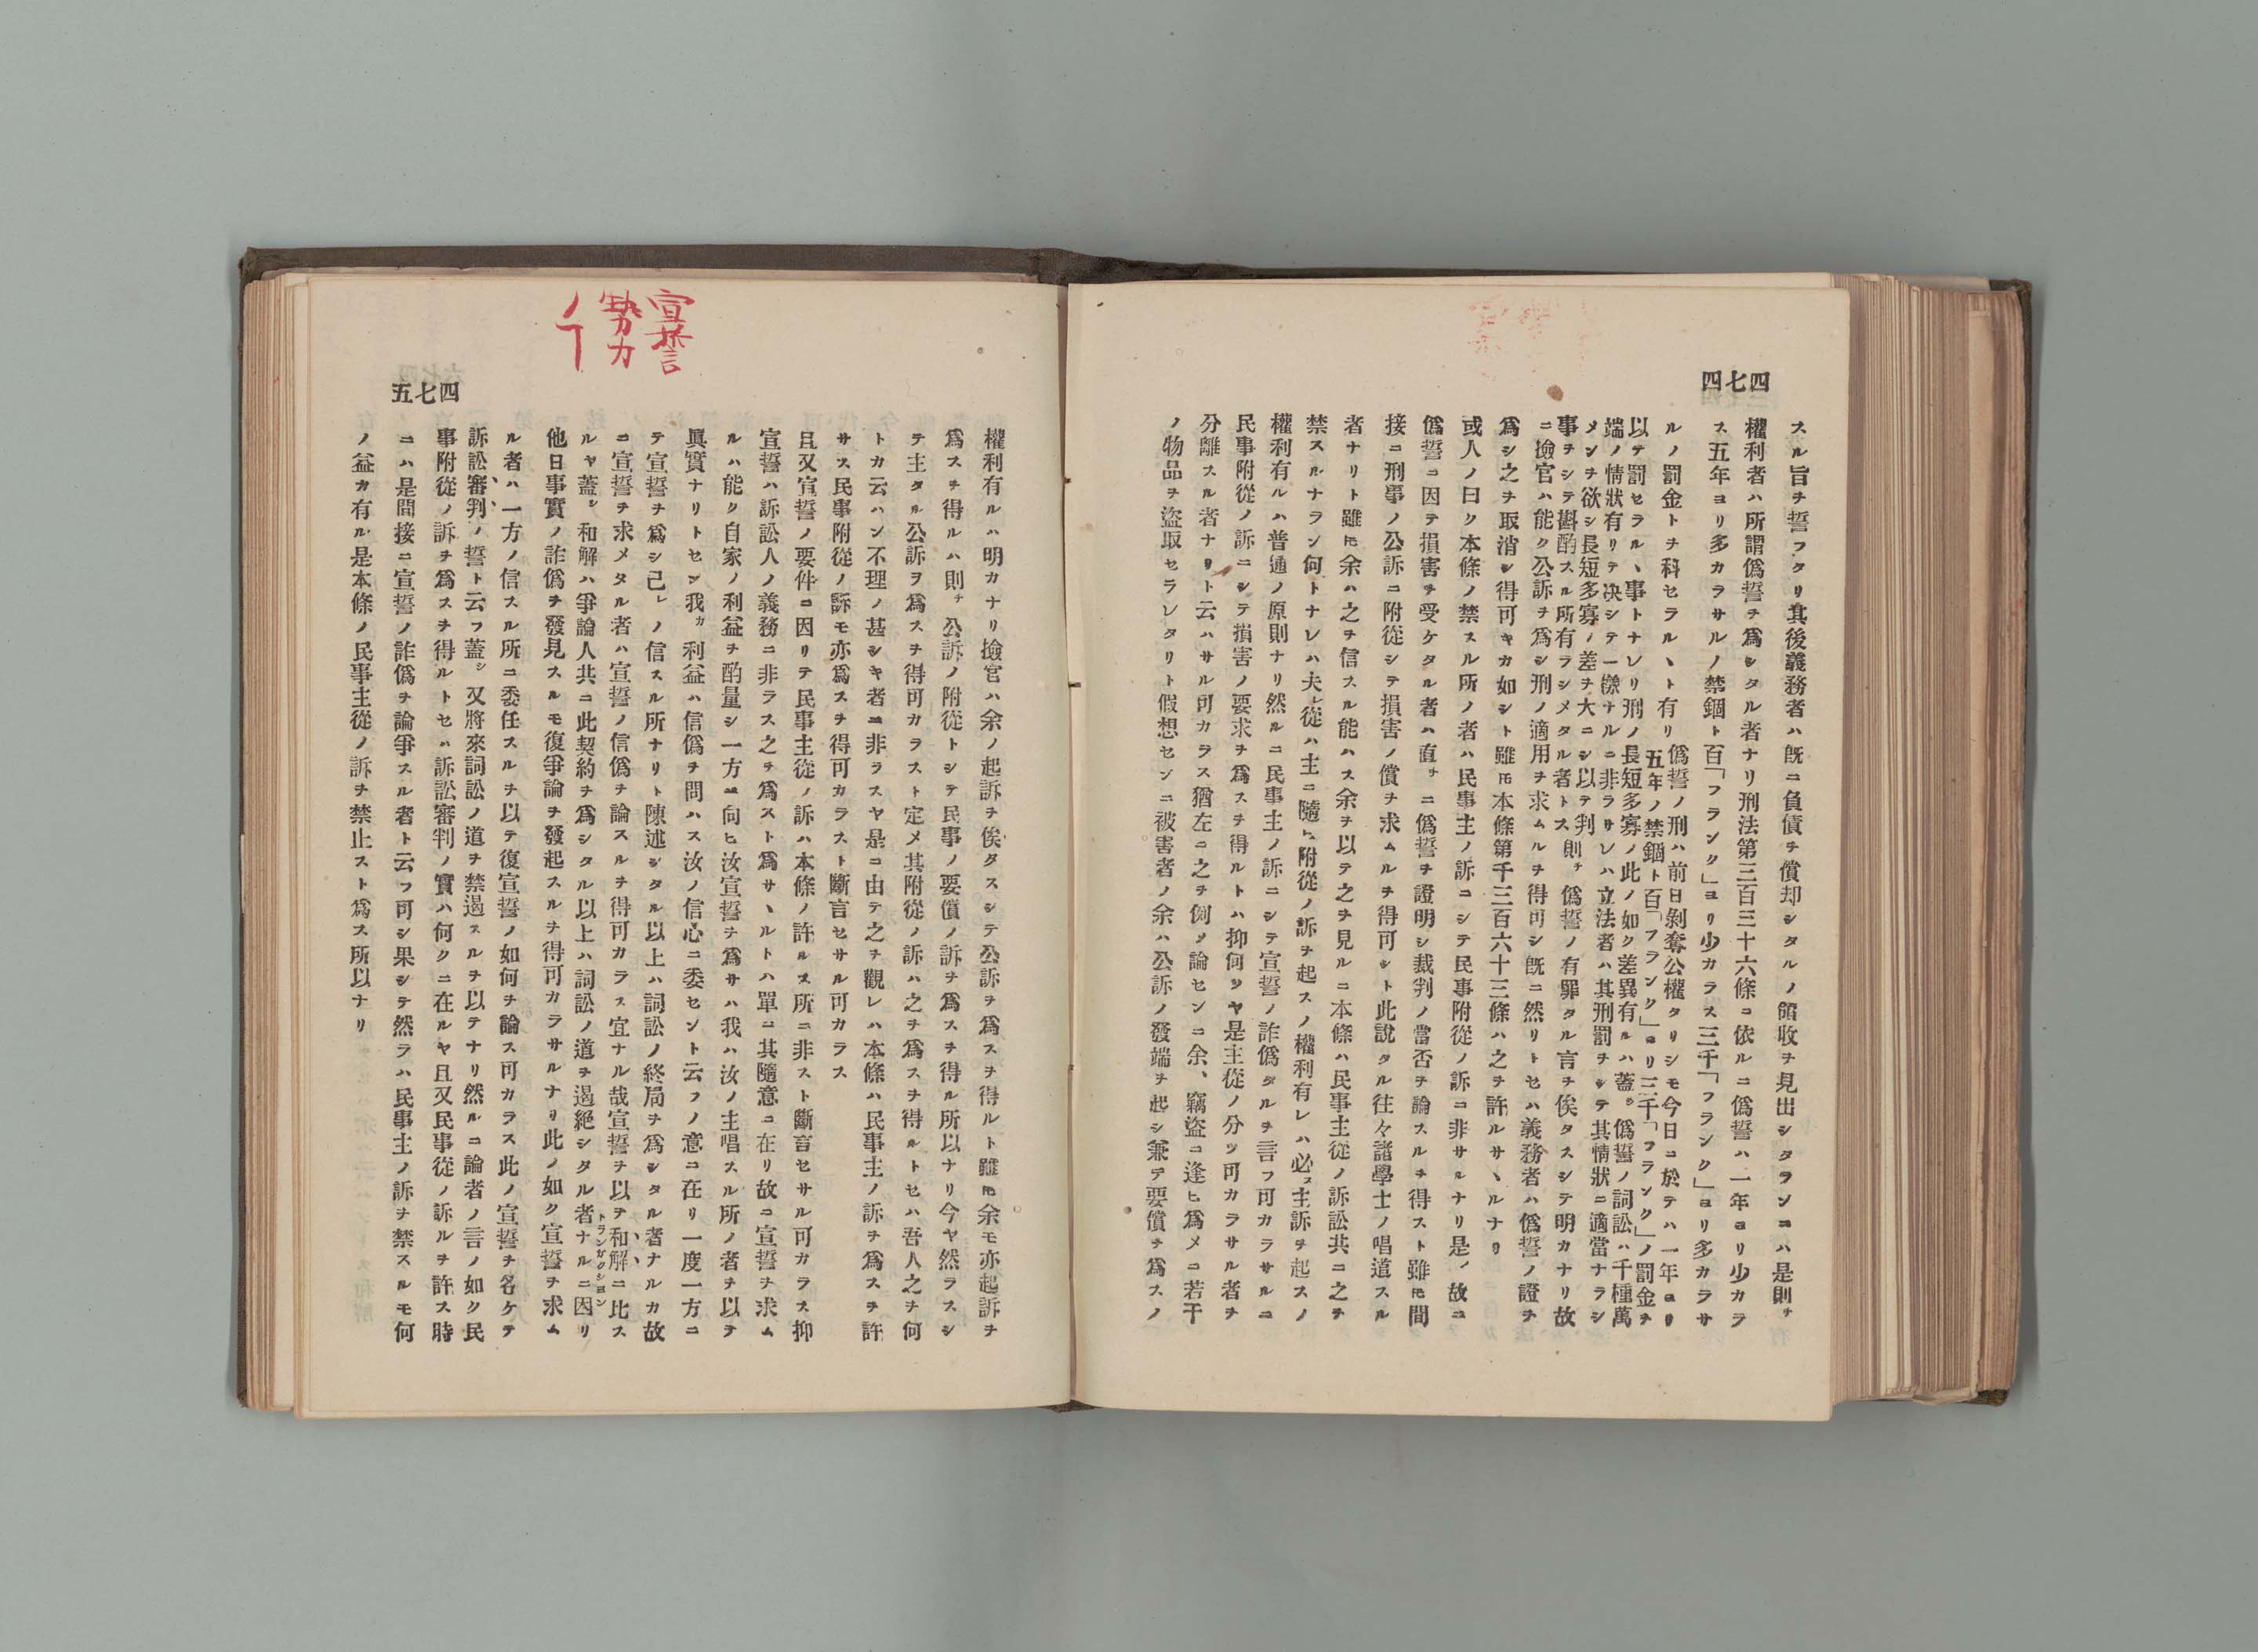 四七四
スル旨ヲ誓フタリ其後義務者ハ既ニ負債ヲ償却シタルノ領收ヲ見出シタランニハ是則チ
權利者ハ所謂僞誓ヲ爲シタル者ナリ刑法第三百三十六條ニ依ルニ僞誓ハ一年ヨリ少カラ
ス五年ヨリ多カラサルノ禁錮ト百「フランク」ヨリ少カラス三千「フランク」ヨリ多カラサ
ルノ罰金トヲ科セラルヽト有リ
僞誓ノ刑ハ前日剝奪公權タリシモ今日ニ於テハ一年ヨリ
五年ノ禁錮ト百「フランク」ヨリ三千「フランク」ノ罰金ヲ
以テ罰セラルヽ事トナレリ刑ノ長短多寡ノ此ノ如ク差異有ルハ蓋シ僞誓ノ詞訟ハ千種萬
端ノ情狀有リテ决シテ一樣ナルニ非ラサレハ立法者ハ其刑罰ヲシテ其情狀ニ適當ナラシ
メンヲ欲シ長短多寡ノ差ヲ大ニシ以テ判
事ヲシテ斟酌スル所有ラシメタル者トス則チ僞誓ノ有罪タル言ヲ俟タスシテ明カナリ故
ニ撿官ハ能ク公訴ヲ爲シ刑ノ適用ヲ求ムルヲ得可シ既ニ然リトセハ義務者ハ僞誓ノ證ヲ
爲シ之ヲ取消シ得可キカ如シト雖𪜈本條第千三百六十三條ハ之ヲ許ルサヽルナリ
或人ノ曰ク本條ノ禁スル所ノ者ハ民事主ノ訴ニシテ民事附從ノ訴ニ非サルナリ是ノ故ニ
僞誓ニ因テ損害ヲ受ケタル者ハ直チニ僞誓ヲ證明シ裁判ノ當否ヲ論スルヲ得スト雖𪜈間
接ニ刑事ノ公訴ニ附從シテ損害ノ償ヲ求ムルヲ得可シト此說タル往々諸學士ノ唱道スル
者ナリト雖𪜈余ハ之ヲ信スル能ハス余ヲ以テ之ヲ見ルニ本條ハ民事主從ノ訴訟共ニ之ヲ
禁スルナラン何トナレハ夫レ從ハ主ニ隨ヒ附從ノ訴ヲ起スノ權利有レハ必ス主訴ヲ起スノ
權利有ルハ普通ノ原則ナリ然ルニ民事主ノ訴ニシテ宣誓ノ詐僞タルヲ言フ可カラサルニ
民事附從ノ訴ニシテ損害ノ要求ヲ爲スヲ得ルトハ抑何ソヤ是主從ノ分ツ可カラサル者ヲ
分離スル者ナリト云ハサル可カラス猶左ニ之ヲ例シ論センニ余、竊盜ニ逢ヒ爲メニ若干
ノ物品ヲ盜取セラレタリト假想センニ被害者ノ余ハ公訴ノ發端ヲ起シ兼テ要償ヲ爲スノ
宣誓
勢力
四七五
權利有ルハ明カナリ撿官ハ余ノ起訴ヲ俟タスシテ公訴ヲ爲スヲ得ルト雖𪜈余モ亦起訴ヲ
爲スヲ得ルハ則チ公訴ノ附從トシテ民事ノ要償ノ訴ヲ爲スヲ得ル所以ナリ今ヤ然ラスシ
テ主タル公訴ヲ爲スヲ得可カラスト定メ其附從ノ訴ハ之ヲ爲スヲ得ルトセハ吾人之ヲ何
トカ云ハン不理ノ甚シキ者ニ非ラスヤ是ニ由テ之ヲ觀レハ本條ハ民事主ノ訴ヲ爲スヲ許
サス民事附從ノ訴モ亦爲スヲ得可カラスト斷言セサル可カラス
且又宣誓ノ要件ニ因リテ民事主從ノ訴ハ本條ノ許ルス所ニ非スト斷言セサル可カラス抑
宣誓ハ訴訟人ノ義務ニ非ラス之ヲ爲スト爲サヽルトハ單ニ其隨意ニ在リ故ニ宣誓ヲ求ム
ルハ能ク自家ノ利益ヲ酌量シ一方ニ向ヒ汝宣誓ヲ爲サハ我ハ汝ノ主唱スル所ノ者ヲ以テ
眞實ナリトセン我カ利益ハ信僞ヲ問ハス汝ノ信心ニ委セント云フノ意ニ在リ一度一方ニ
テ宣誓ヲ爲シ己レノ信スル所ナリト陳述シタル以上ハ詞訟ノ終局ヲ爲シタル者ナルカ故
ニ宣誓ヲ求メタル者ハ宣誓ノ信僞ヲ論スルヲ得可カラス宜ナル哉宣誓ヲ以テ和解ニ比ス
トランザクシヨン
ルヤ蓋シ和解ハ爭論人共ニ此契約ヲ爲シタル以上ハ詞訟ノ道ヲ遏絶シタル者ナルニ因リ
他日事實ノ詐僞ヲ發見スルモ復爭論ヲ發起スルヲ得可カラサルナリ此ノ如ク宣誓ヲ求ム
ル者ハ一方ノ信スル所ニ委任スルヲ以テ復宣誓ノ如何ヲ論ス可カラス此ノ宣誓ヲ名ケテ
訴訟審判ノ誓ト云フ蓋シ又將來詞訟ノ道ヲ禁遏スルヲ以テナリ然ルニ論者ノ言ノ如ク民
事附從ノ訴ヲ爲スヲ得ルトセハ訴訟審判ノ實ハ何クニ在ルヤ且又民事從ノ訴ルヲ許ス時
ニハ是間接ニ宣誓ノ詐僞ヲ論爭スル者ト云フ可シ果シテ然ラハ民事主ノ訴ヲ禁スルモ何
ノ益カ有ル是本條ノ民事主從ノ訴ヲ禁止スト爲ス所以ナリ